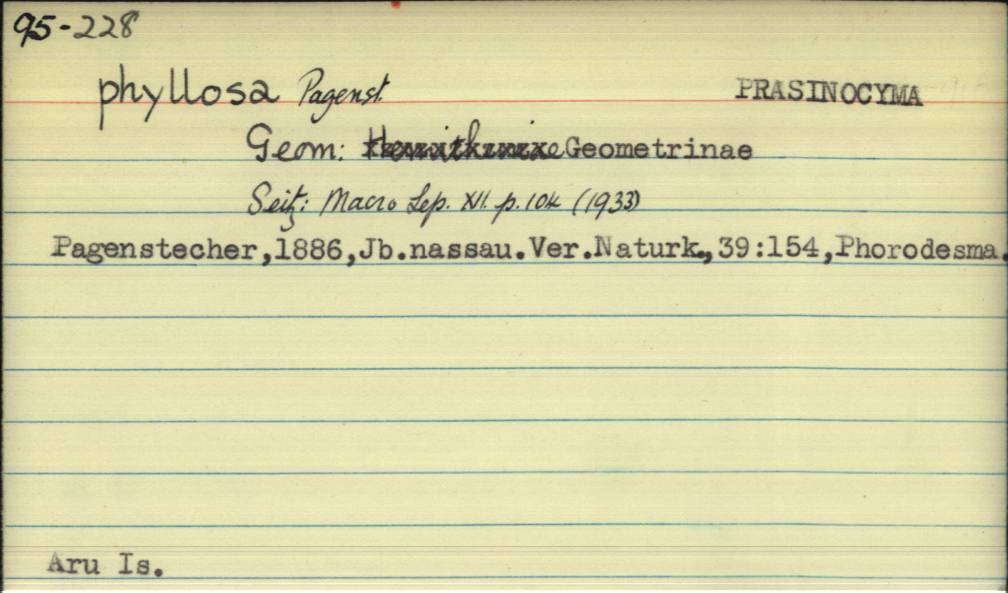 95-228
phyllosa Pagenst. PRASINOCYMA
Geom: Hemitheinae Geometrinae
Seitz: Macro Lep. XII. p. 104 (1933)
Pagenstecher,1886,Jb.nassau.Ver.Naturk.,39:154,Phorodesma.
Aru Is.